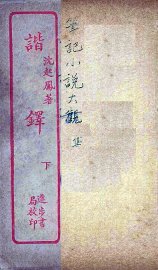 筆記小說大觀
沈起鳳著
諧鐸
下
進步書
局校印